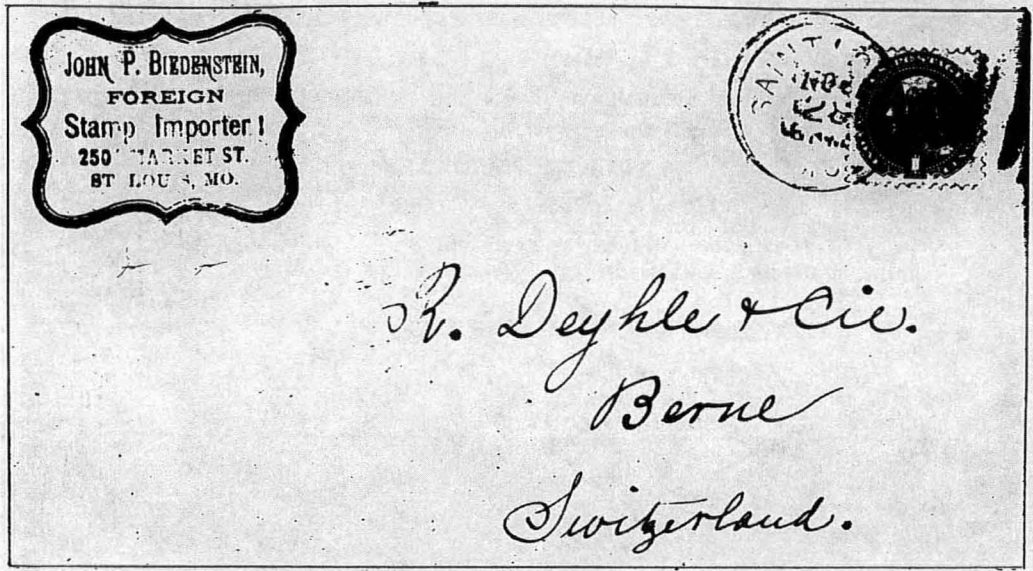 JOHN P. BIEDENSTEIN,
FOREIGN
Stamp Importer!
250 MARKET ST.
ST LOUIS, MO.
SAINT
NOV
28
R. Deyhle & Cie.
Berne
Switzerland.